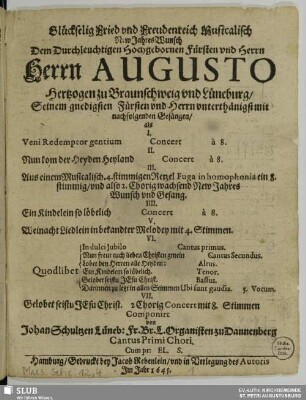 Glückselig Fried vnd Freudenreich Musicalisch
New Jahres Wunsch
Dem Durchleuchtigen Hochgebornen Fürsten vnd Herrn
Herrn AUGUSTO
Hertzogen zu Braunschweig vnd Lüneburg/
Seinem gnedigsten Fürsten vnd Herrn vnterthänigst mit
nachfolgenden Gesängen/
als
I.
Veni Redemptor gentium Concert à 8.
II.
Nun kom der Heyden Heyland Concert à 8.
III.
Aus einem Musicalisch 4. stimmigen Fuga in homophonia ein 8.
stimmig/ vnd also 2. Chorig wachsend New Jahres
Wunsch vnd Gesang.
IIII.
Ein Kindelein so löbelich Concert à 8.
V.
Weinacht Liedlein in bekandter Melodey mit 4. Stimmen.
VI.
Quodlibet
In dulci Jubilo Cantus primus.
Nun frewt euch lieben Christen gmein Cantus Secundus.
Lobet den Herren alle Heyden: Altus.
Ein Kindelein so löbelich. Tenor.
Gelobet seistu JEsu Christ. Bassus.
in allen Stimmen 5. Vocum.
VII.
Gelobet seistu JEsu Christ. 2 Chorig Concert mit 8. Stimmen
Componirt
von
Johan Schultzen Lüneb: Fr. Br. L. Organisten zu Dannenberg
Cantus Primi Chori,
Cum pri: EL. S.
Hamburg/ Gedruckt bey Jacob Rebenlein/ vnd in Verlegung des Autoris
Im Jahr 1645.
SLUB
Wir führen Wissen.
EV.-LUTH. KIRCHGEMEINDE
ST. PETRI AUGUSTUSBURG